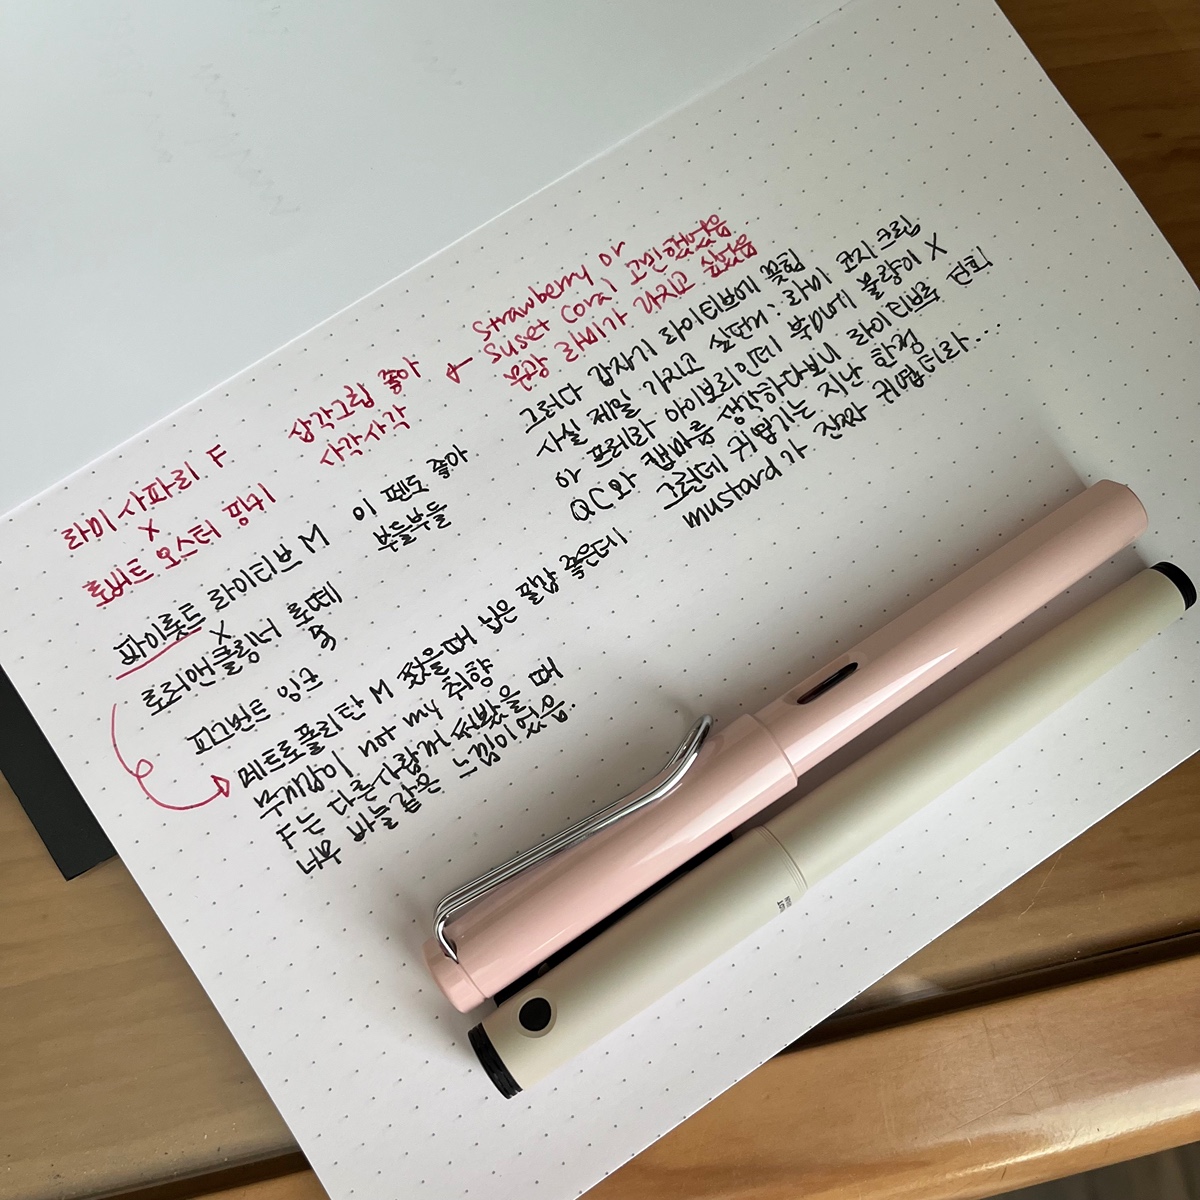 라미 사파리 F
X
로버트 오스터 핑키
삽각그립 좋아
사각사각
← Strawberry or
suset coral 고민했었음
원랑 라미가 가지고 싶었음
파이롯트 라이티브 M 이 펜도 좋아
X 부들부들
로러앤클링너 로떼
피그먼트 잉크
그러다 갑자기 라이티브에 꽂힘
사실 제일 가지고 싶던거: 라미 코지 크림
아 프레라 아이보리인데 부DM에 물량이 X
QC와 캡마름 생각하다보니 라이티브로 선회
그런데 귀엽기는 지난 한정
mustard가 진짜 귀엽더라...
메트로폴리탄 M 썼을때 닙은 필감 좋은데
무게감이 not my 취향
F는 다른사람꺼 써봤을 때
너무 바늘같은 느낌이 었음.